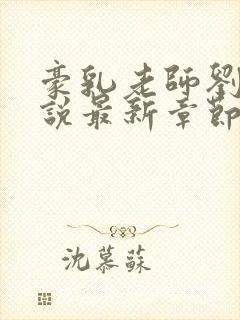 豪乳老師劉
說最新章節
沈慕蘇